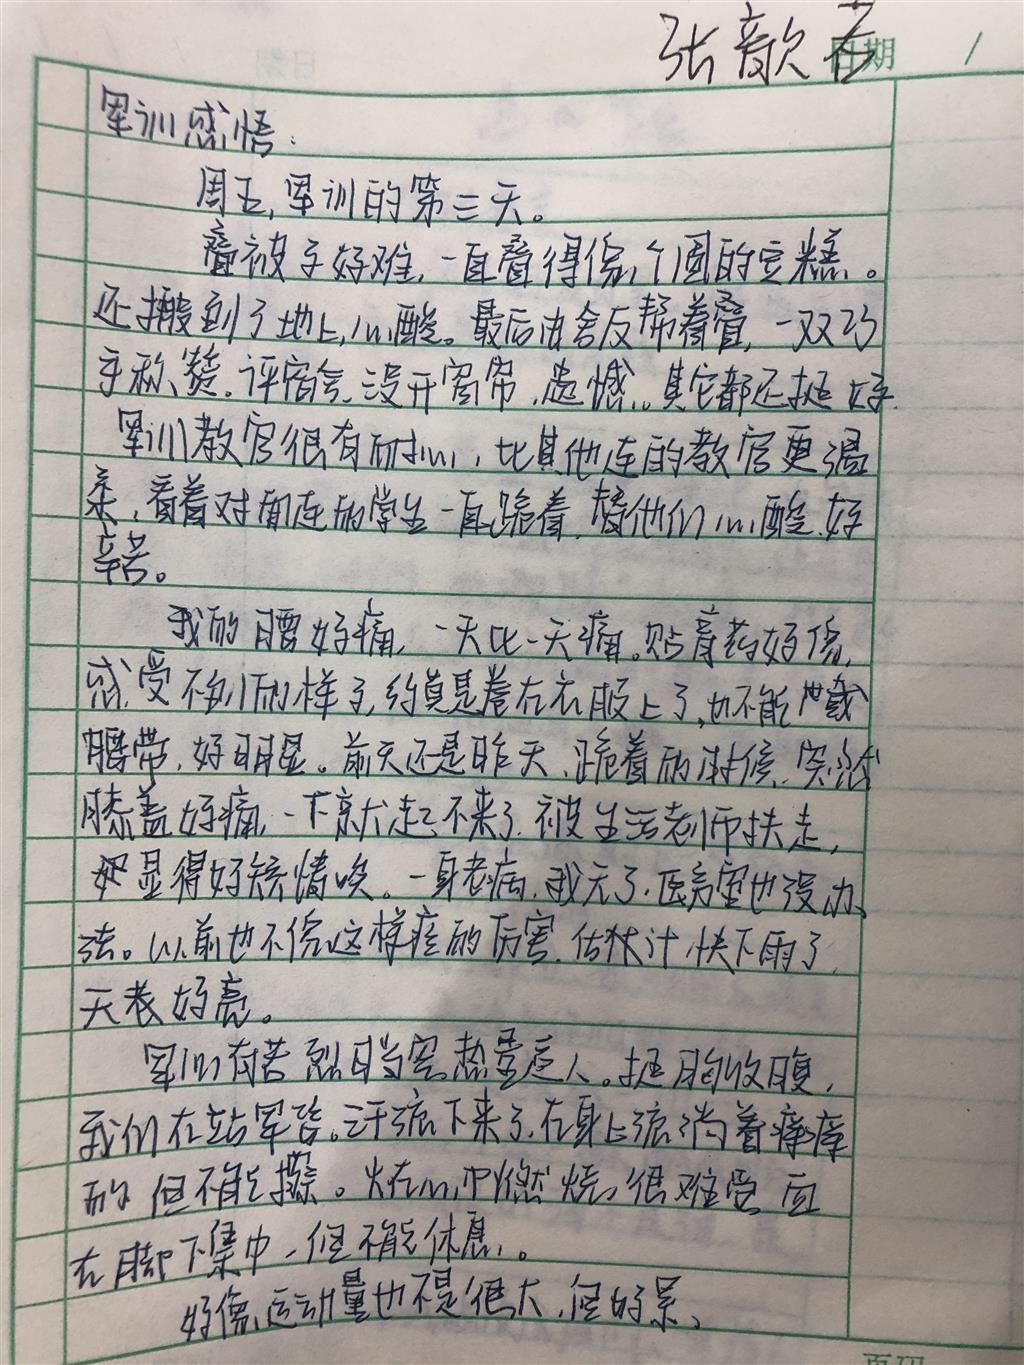 张歆若 日期
军训感悟.
周五,军训的第三天。
叠被子好难,一直叠得像个圆的蛋糕。
还搬到了地上,心酸。最后由舍友帮着叠,一双巧
手称赞。评宿舍,没开窗帘,遗憾。其它都还挺好.
军训教官很有耐心,比其他连的教官更温
柔,看着对面连的学生一直跪着,替他们心酸,好
辛苦。
我的腰好痛,一天比一天痛。贴膏药好像
感受不到的样子,药真是卷在衣服上了,也不能戴
腰带,好明显。前天还是昨天,跪着的时候,突然
膝盖好痛,一下就起不来了,被生活老师扶走,
显得好矫情唉。一身老病,我无了,医务室也没办
法。以前也不像这样疼的厉害,估计快下雨了,
天卷好亮。
军训有苦,烈日当空,热量逼人。挺胸收腹,
我们在站军姿。汗流下来了,在身上流淌着痒痒
的,但不能擦。火在心中燃烧,很难受,血
在脚下集中,但不能休息,。
好像运动量也不是很大,但好累、